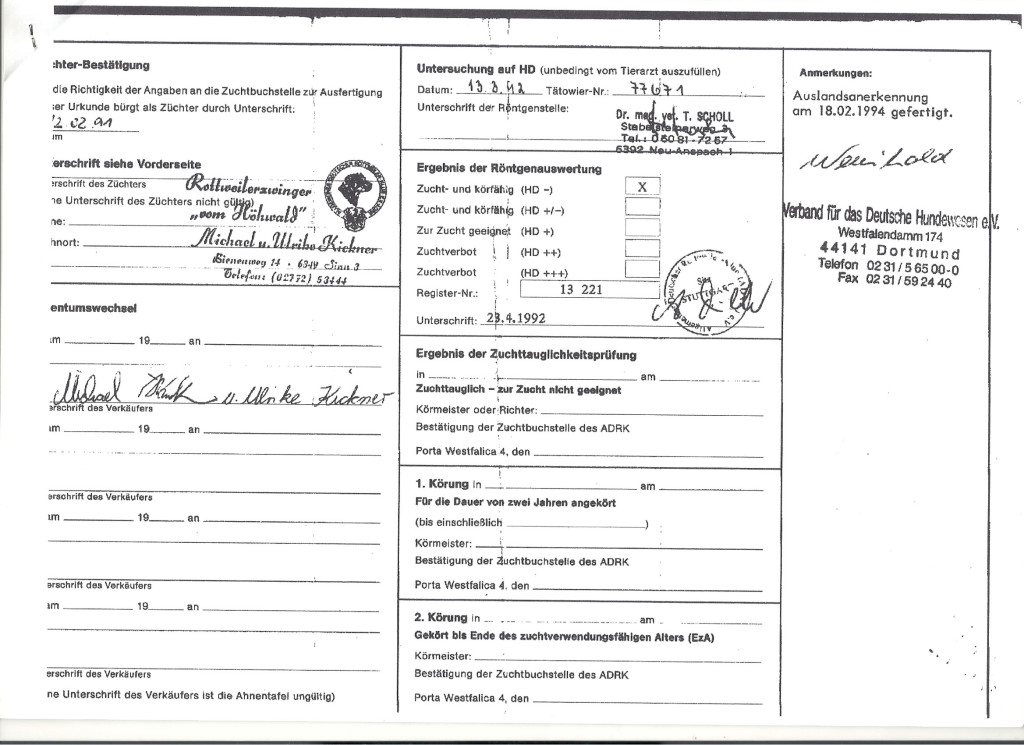 chter-Bestätigung
die Richtigkeit der Angaben an die Zuchtbuchstelle zur Ausfertigung
er Urkunde bürgt als Züchter durch Unterschrift:
2 02.91
um
erschrift siehe Vorderseite
erschrift des Züchters
ne Unterschrift des Züchters nicht gültig)
ne:
hnort:
Rottweilerzwinger
„vom Höhwald"
Michael u. Ulrike Kickner
Bienenweg 14 · 6349 Sinn 3
Telefon: (02772) 53444
entumswechsel
am 19 an
Michael u. Ulrike Kickner
erschrift des Verkäufers
am 19 an
erschrift des Verkäufers
am 19 an
erschrift des Verkäufers
am 19 an
erschrift des Verkäufers
ne Unterschrift des Verkäufers ist die Ahnentafel ungültig)
Untersuchung auf HD (unbedingt vom Tierarzt auszufüllen)
Datum: 13.3.92 Tätowier-Nr.: 77671
Unterschrift der Röntgenstelle:
Dr. med. vet. T. SCHOLL
Tel.: 06081-7267
6392 Neu-Anspach 1
Ergebnis der Röntgenauswertung
Zucht- und körfähig (HD –) X
Zucht- und körfähig (HD +/–)
Zur Zucht geeignet (HD +)
Zuchtverbot (HD ++)
Zuchtverbot (HD +++)
Register-Nr.: 13 221
Unterschrift: 23.4.1992
Sitz
STUTTGART
Ergebnis der Zuchttauglichkeitsprüfung
in am
Zuchttauglich – zur Zucht nicht geeignet
Körmeister oder Richter:
Bestätigung der Zuchtbuchstelle des ADRK
Porta Westfalica 4, den
1. Körung in am
Für die Dauer von zwei Jahren angekört
(bis einschließlich )
Körmeister:
Bestätigung der Zuchtbuchstelle des ADRK
Porta Westfalica 4. den
2. Körung in am
Gekört bis Ende des zuchtverwendungsfähigen Alters (EzA)
Körmeister:
Bestätigung der Zuchtbuchstelle des ADRK
Porta Westfalica 4, den
Anmerkungen:
Auslandsanerkennung
am 18.02.1994 gefertigt.
Verband für das Deutsche Hundewesen e.V.
Westfalendamm 174
44141 Dortmund
Telefon 02 31 / 5 65 00-0
Fax 02 31 / 59 24 40